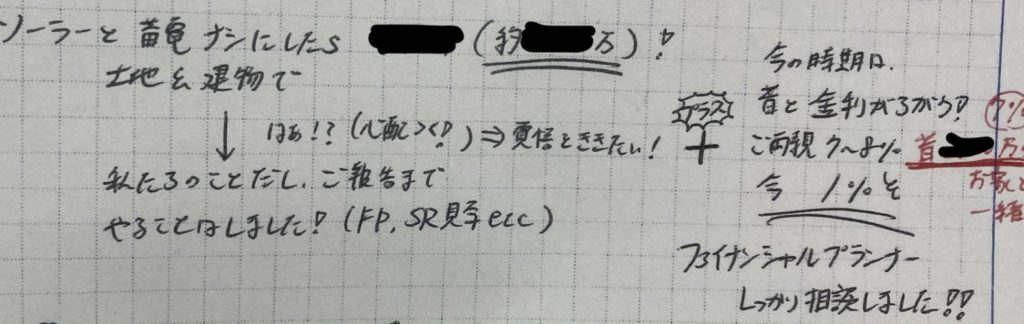 ソーラーと蓄電ナシにしたら (約 万)!
土地&建物で
↓ はぁ!?(心配つく!)⇒賃借とききたい!
私たちのことだし、ご報告まで
やることはしました!(FP、SR見学etc)
プラス
+
今の時期は、
昔と金利がちがう!
ご両親 7〜8%
今 1%と
ファイナンシャルプランナー
しっかり相談しました!!
7%
昔 万
お家と
一種